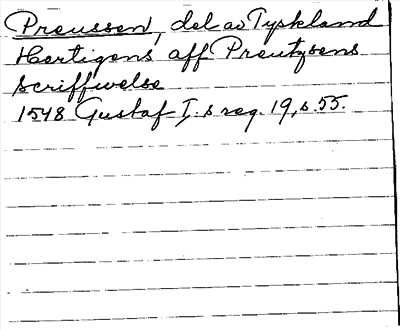 Preussen, del av Tyskland
Hertigens aff Preutzsens
scriffwelse
1548 Gustaf I. s reg. 19, s. 55.